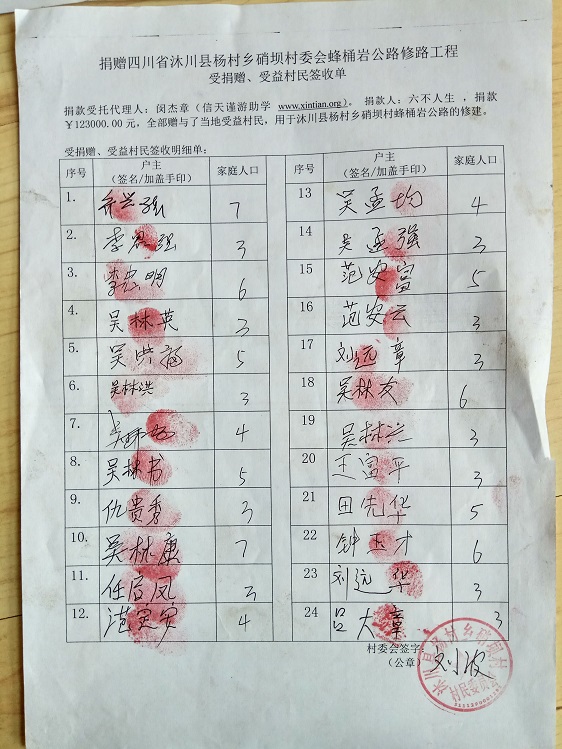 捐赠四川省沐川县杨村乡硝坝村委会蜂桶岩公路修路工程
受捐赠、受益村民签收单
捐款受托代理人：闵杰章（信天谨游助学 www.xintian.org）。 捐款人：六不人生 ，捐款
￥123000.00 元，全部赠与了当地受益村民，用于沐川县杨村乡硝坝村蜂桶岩公路的修建。
受捐赠、受益村民签收明细单：
序号 户主（签名/加盖手印） 家庭人口
1. 7
2. 李忠强 3
3. 李忠明 6
4. 吴林英 3
5. 吴洪福 5
6. 吴林洪 3
7. 4
8. 吴林书 5
9. 仇贵秀 3
10. 吴林康 7
11. 任后凤 3
12. 范安 4
序号 户主（签名/加盖手印） 家庭人口
13 吴孟均 4
14 吴孟强 3
15 范安富 5
16 范安云 3
17 刘远章 3
18 吴林友 6
19 吴林兴 3
20 王富平 3
21 田先华 5
22 钟玉才 6
23 刘远华 3
24 吕大章 3
村委会签字 刘波
（公章）